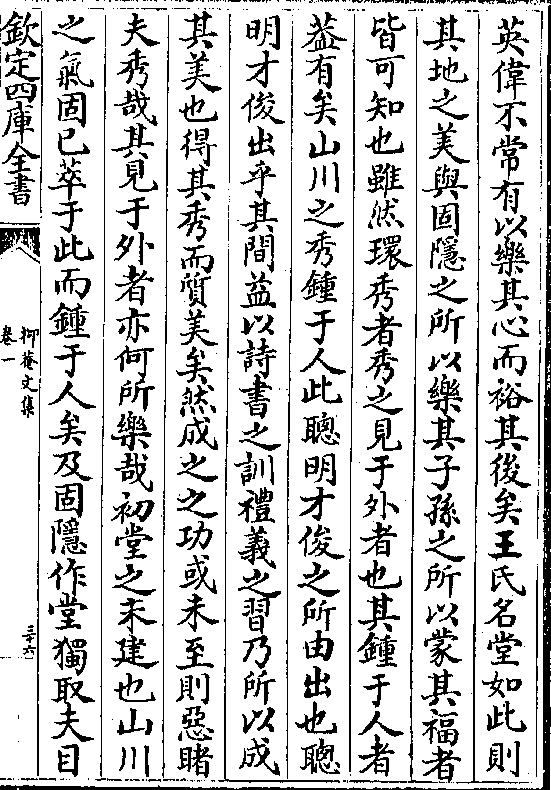 英偉不常有以樂其心而裕其後矣王氏名堂如此則
其地之美與固隱之所以樂其子孫之所以蒙其福者
皆可知也雖然環秀者秀之見于外者也其鍾于人者
葢有矣山川之秀鍾于人此聰明才俊之所由出也聰
明才俊出乎其間益以詩書之訓禮義之習乃所以成
其美也得其秀而質美矣然成之之功或未至則惡睹
夫秀哉其見于外者亦何所樂哉初堂之未建也山川
之氣固已萃于此而鍾于人矣及固隱作堂獨取夫目
欽定四庫全書
抑菴文集
卷一
三十六